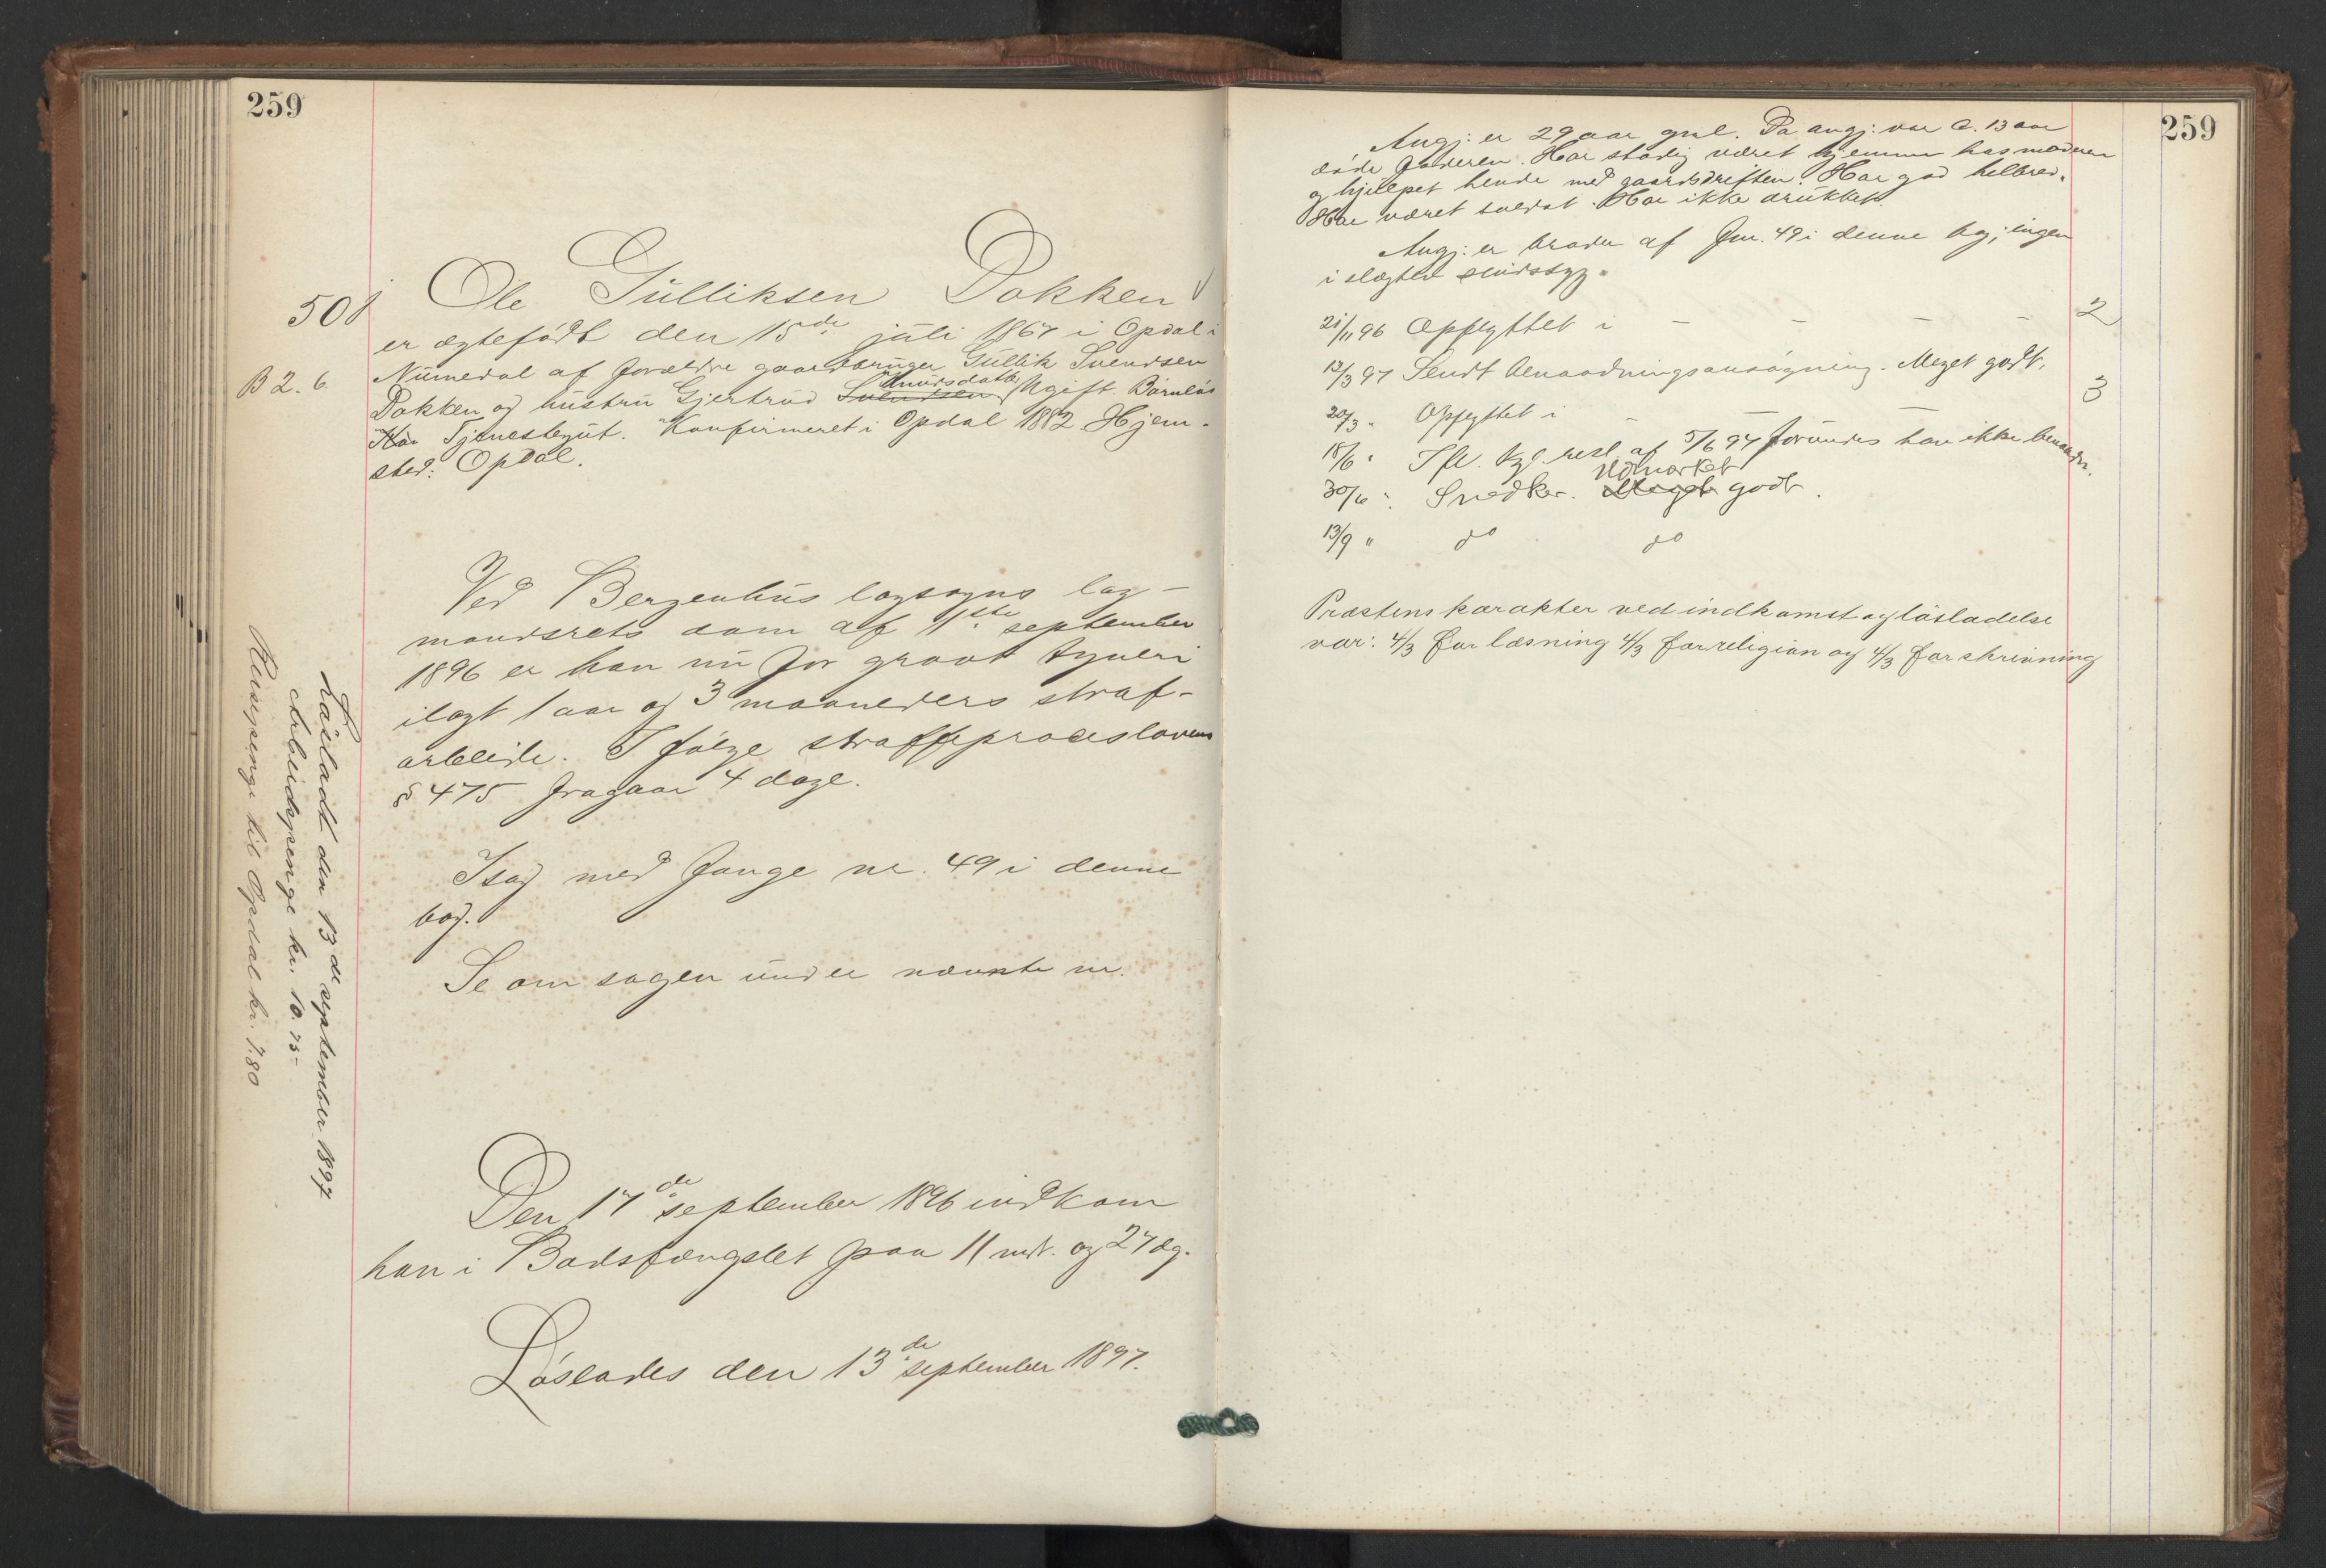 259
50
B 2. 6.
Ole Gulliksen Dokken
er ægtefödt den 15de juli 1867 i Opdal i
Numedal af forældre gaardbruger Gullik Svendsen
Dokken og hustru Gjertrud Svendsen Knudsdatter Ugift. Barnløs
Har Tjenestegut. Konfirmeret i Opdal 1882. Hjem-
sted: Opdal.
Ved Bergenhus lagsogns lag-
mandsrets dom af 11te september
1896 er han nu for grovt tyveri
ilagt 1 aar og 3 maaneders straf-
arbeide. I følge straffeproceslovens
§ 475 fragaar 4 dage.
I sag med fange nr. 49 i denne
bog.
Se om sagen under nævnte nr.
Den 17de september 1896 indkom
han i Bodsfængslet paa 11 mdr. og 27 dg.
Löslades den 13de september 1897.
Lösladt den 13de september 1897
Arbeidspenge kr. 10.75-
Reisepenge til Opdal kr. 7.80
259
Angj: er 29 aar gml. Da angj: var c. 13 aar
döde faderen. Har stadig været hjemme hos moderen
og hjulpet hende med gaardsdriften. Har god helbred.
Har været soldat. Har ikke drukket.
Angj: er broder af fnr. 49 i denne bog; ingen
i slægten sindssyg.
21/11 96 Opflyttet i - - - - 2
12/3 97 Sendt benaadningsansøgning. Meget godt.
20/3 " Opflyttet i - - - 3
18/6 " Ifl. kgl. resl. af 5/6 97 forundes han ikke benaadn.
30/6 " Snedker. Meget Udmærket godt.
13/9 " do do
Præstens karakter ved indkomst og løsladelse
var: 4/3 for læsning 4/3 for religion og 4/3 for skrivning